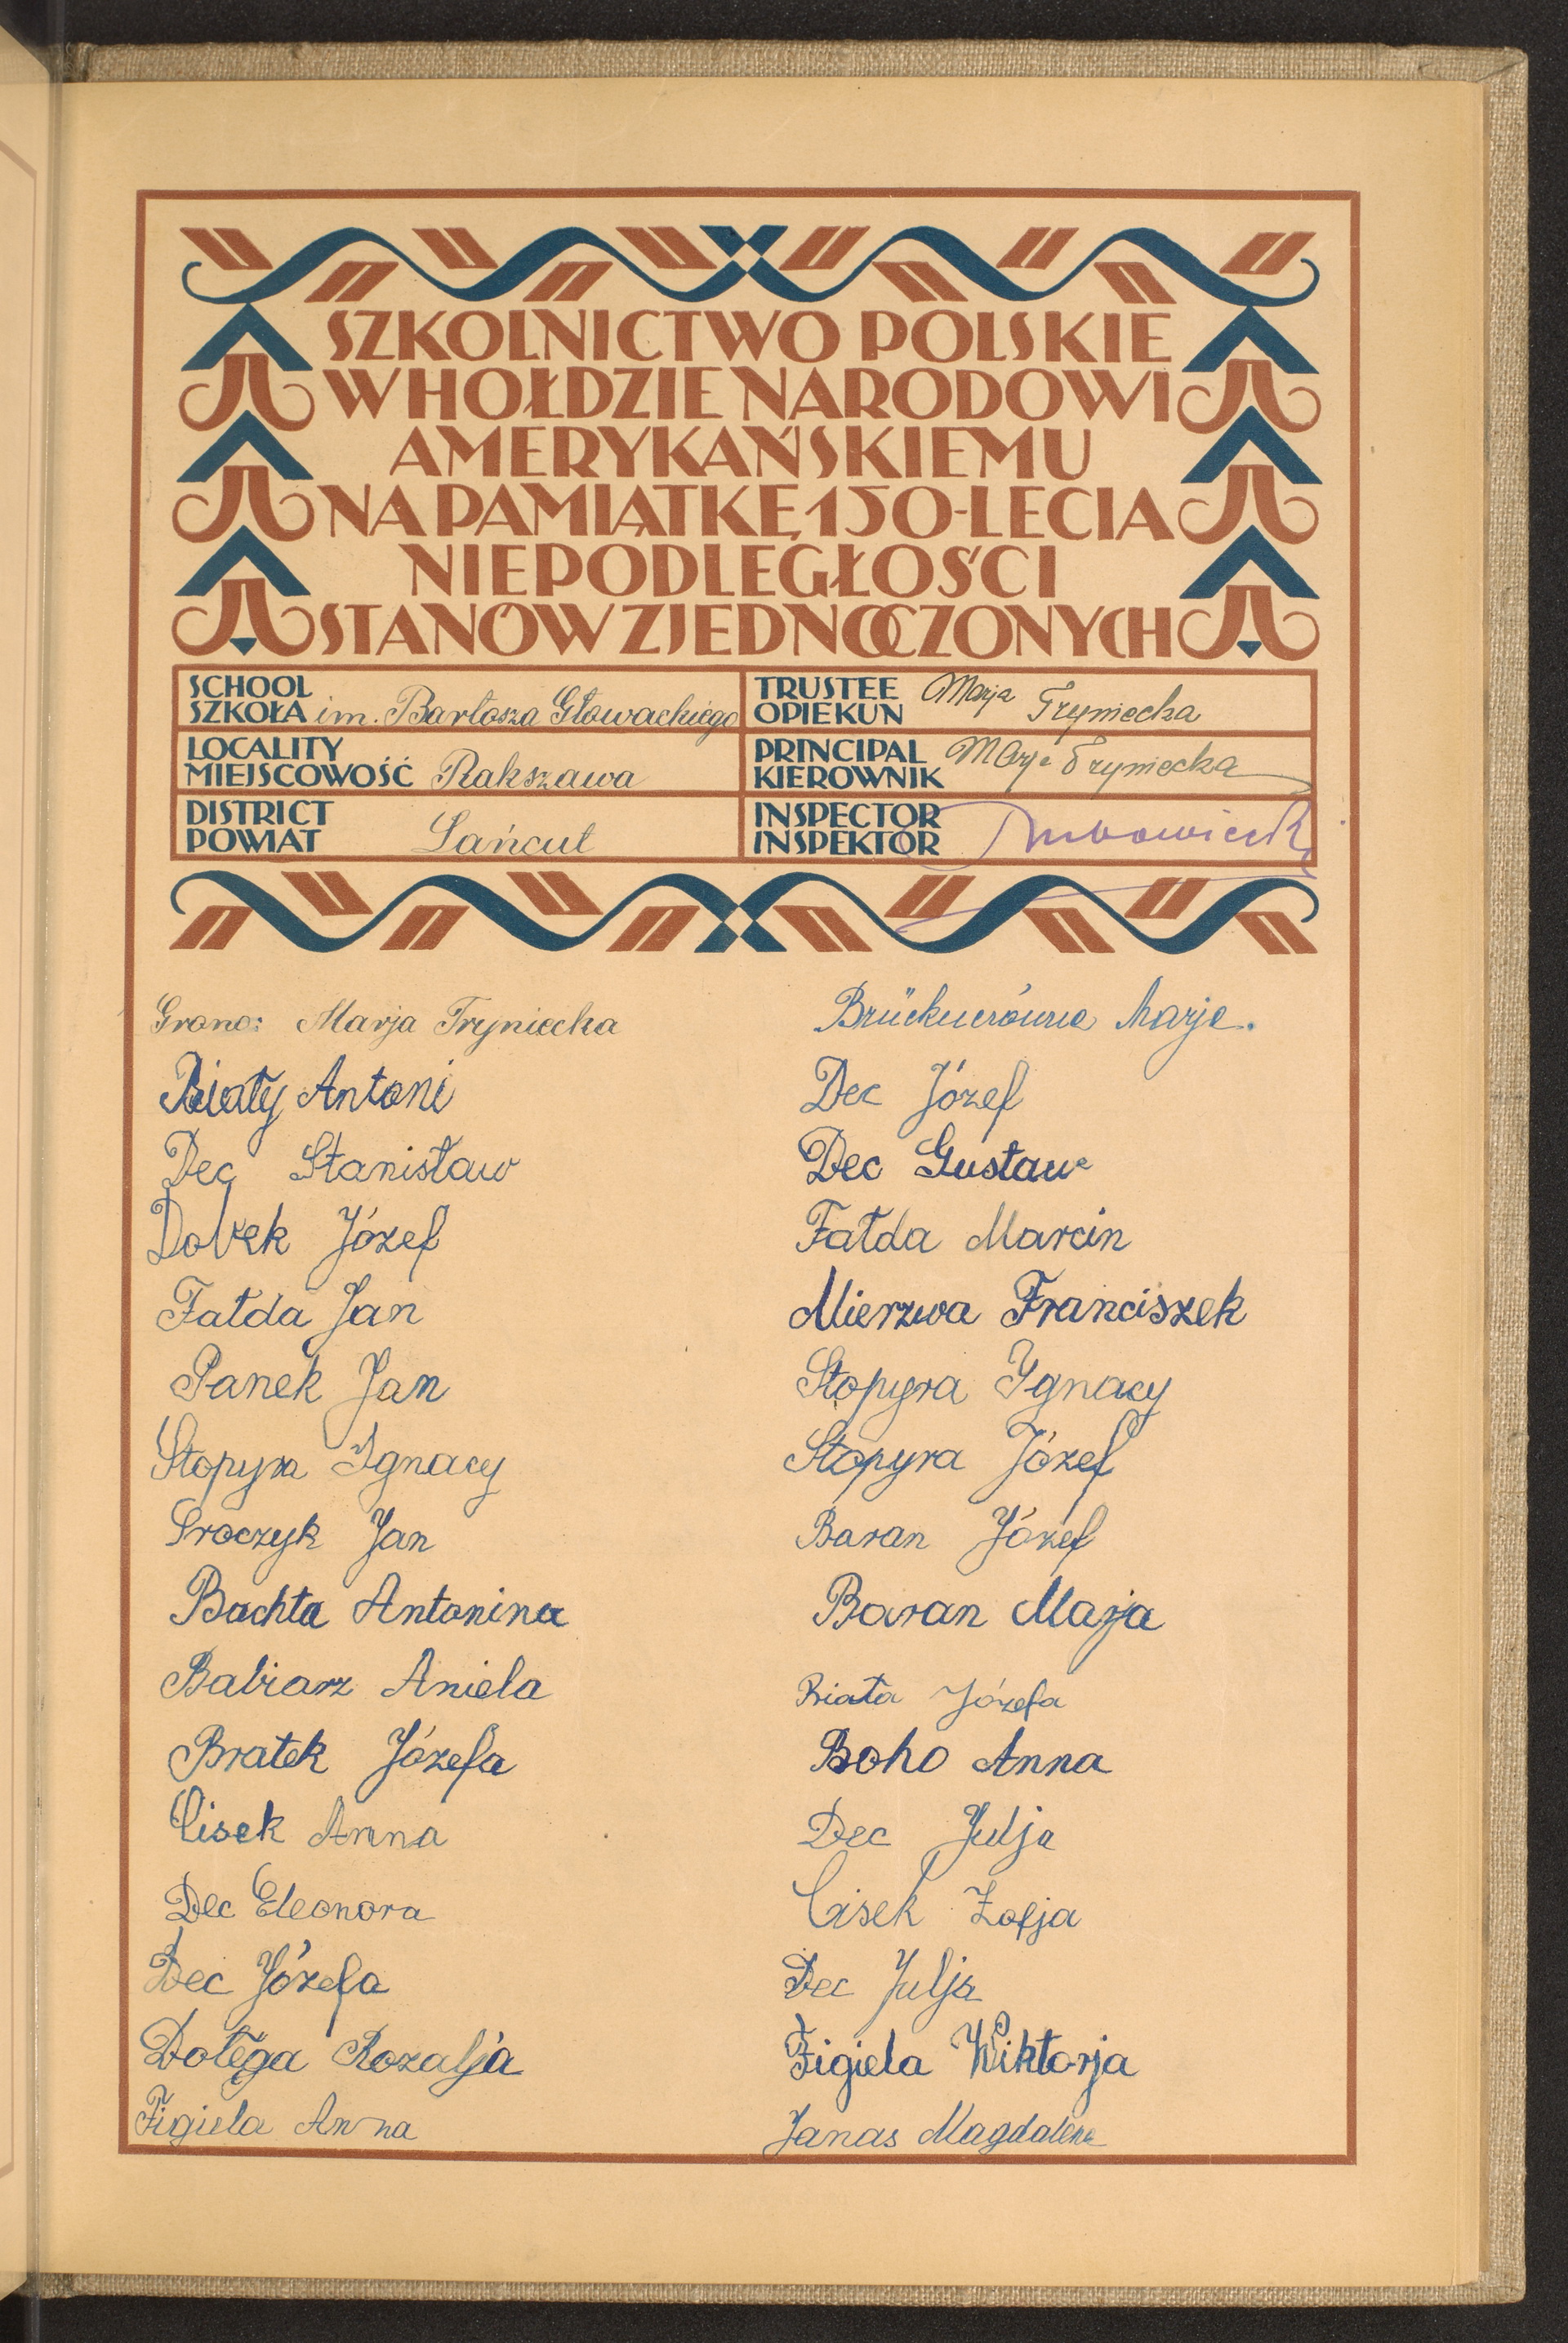 SZKOLNICTWO POLSKIE
W HOŁDZIE NARODOWI
AMERYKAŃSKIEMU
NA PAMIĄTKĘ 150-LECIA
NIEPODLEGŁOŚCI
STANÓW ZJEDNOCZONYCH
SCHOOL
SZKOŁA im. Bartosza Głowackiego
TRUSTEE
OPIEKUN Marja Tryniecka
LOCALITY
MIEJSCOWOŚĆ Rakszawa
PRINCIPAL
KIEROWNIK Marja Tryniecka
DISTRICT
POWIAT Łańcut
INSPECTOR
INSPEKTOR
Grono: Marja Tryniecka
Brücknerówna Marja.
Biały Antoni
Dec Józef
Dec Stanisław
Dec Gustaw
Dołżek Józef
Fałda Marcin
Fałda Jan
Mierzwa Franciszek
Panek Jan
Stopyra Ygnacy
Stopyra Ignacy
Stopyra Józef
Proczyk Jan
Baran Józef
Bachta Antonina
Baran Marja
Babiarz Aniela
Biała Józefa
Bratek Józefa
Boho Anna
Cisek Anna
Dec Julja
Dec Eleonora
Cisek Zofja
Dec Józefa
Dec Julja
Dołęga Rozalja
Figiela Wiktorja
Figiela Anna
Janas Magdalena